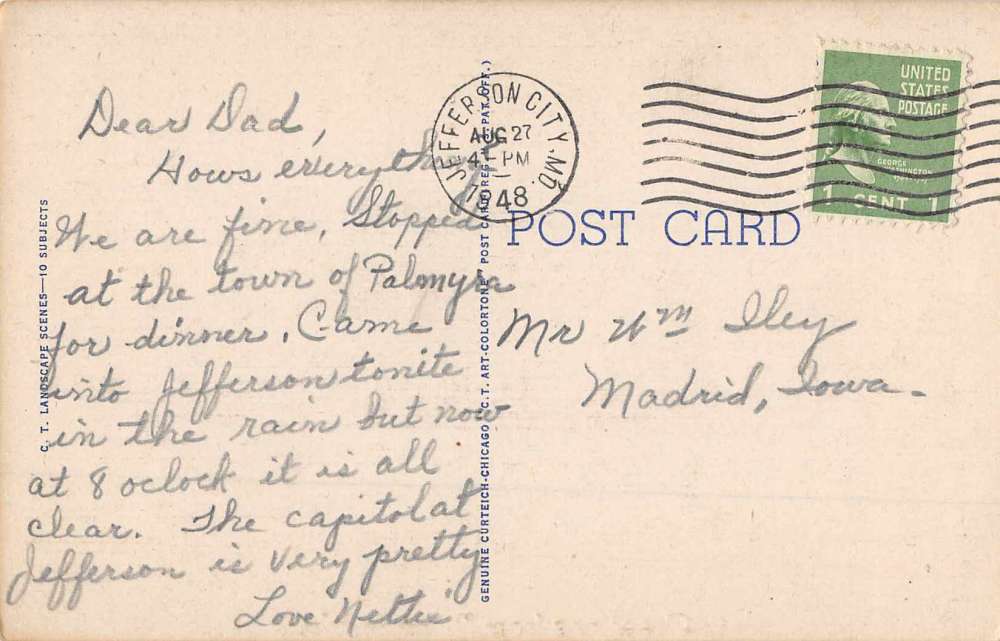 Dear Dad,
Hows everything
We are fine, Stopped
at the town of Palmyra
for dinner. Came
into Jefferson tonite
in the rain but now
at 8 oclock it is all
clear. The capitol at
Jefferson is very pretty
Love Nettie
C. T. LANDSCAPE SCENES—10 SUBJECTS
GENUINE CURTEICH-CHICAGO "C.T. ART-COLORTONE" POST CARD (REG. U.S. PAT. OFF.)
JEFFERSON CITY, MO.
AUG 27
4-PM
1948
UNITED
STATES
POSTAGE
GEORGE
WASHINGTON
1 CENT 1
POST CARD
Mr Wm Iley
Madrid, Iowa.